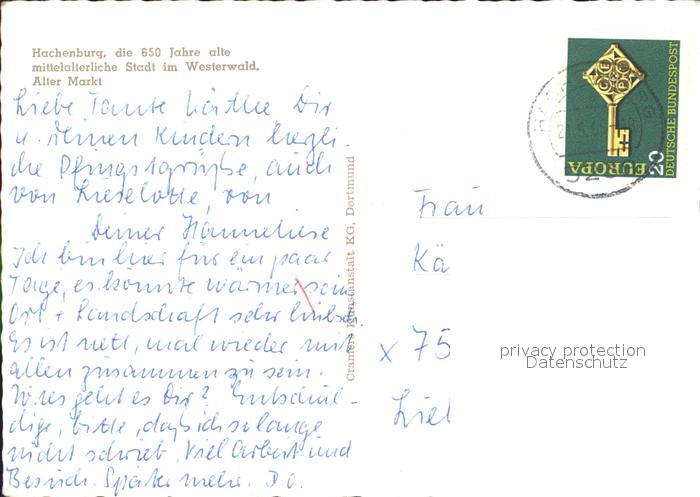 Hachenburg, die 650 Jahre alte
mittelalterliche Stadt im Westerwald.
Alter Markt
Liebe Tante Käthe Dir
u. Deinen Kindern herzli-
che Pfingstgrüße, auch
von Lieselotte, von
Deiner Hanneliese
Ich bin hier für ein paar
Tage, es könnte wärmer sein
Ort + Landschaft sehr hübsch.
Es ist nett, mal wieder mit
allen zusammen zu sein.
Wie geht es Dir? Entschul-
dige, bitte, daß ich so lange
nicht schrieb. Viel Arbeit und
Besuch. Später mehr. D. O.
Cramers Kunstanstalt KG, Dortmund
DEUTSCHE BUNDESPOST
EUROPA
20
CEPT
Frau
Kä
x 75
Liel
privacy protection
Datenschutz